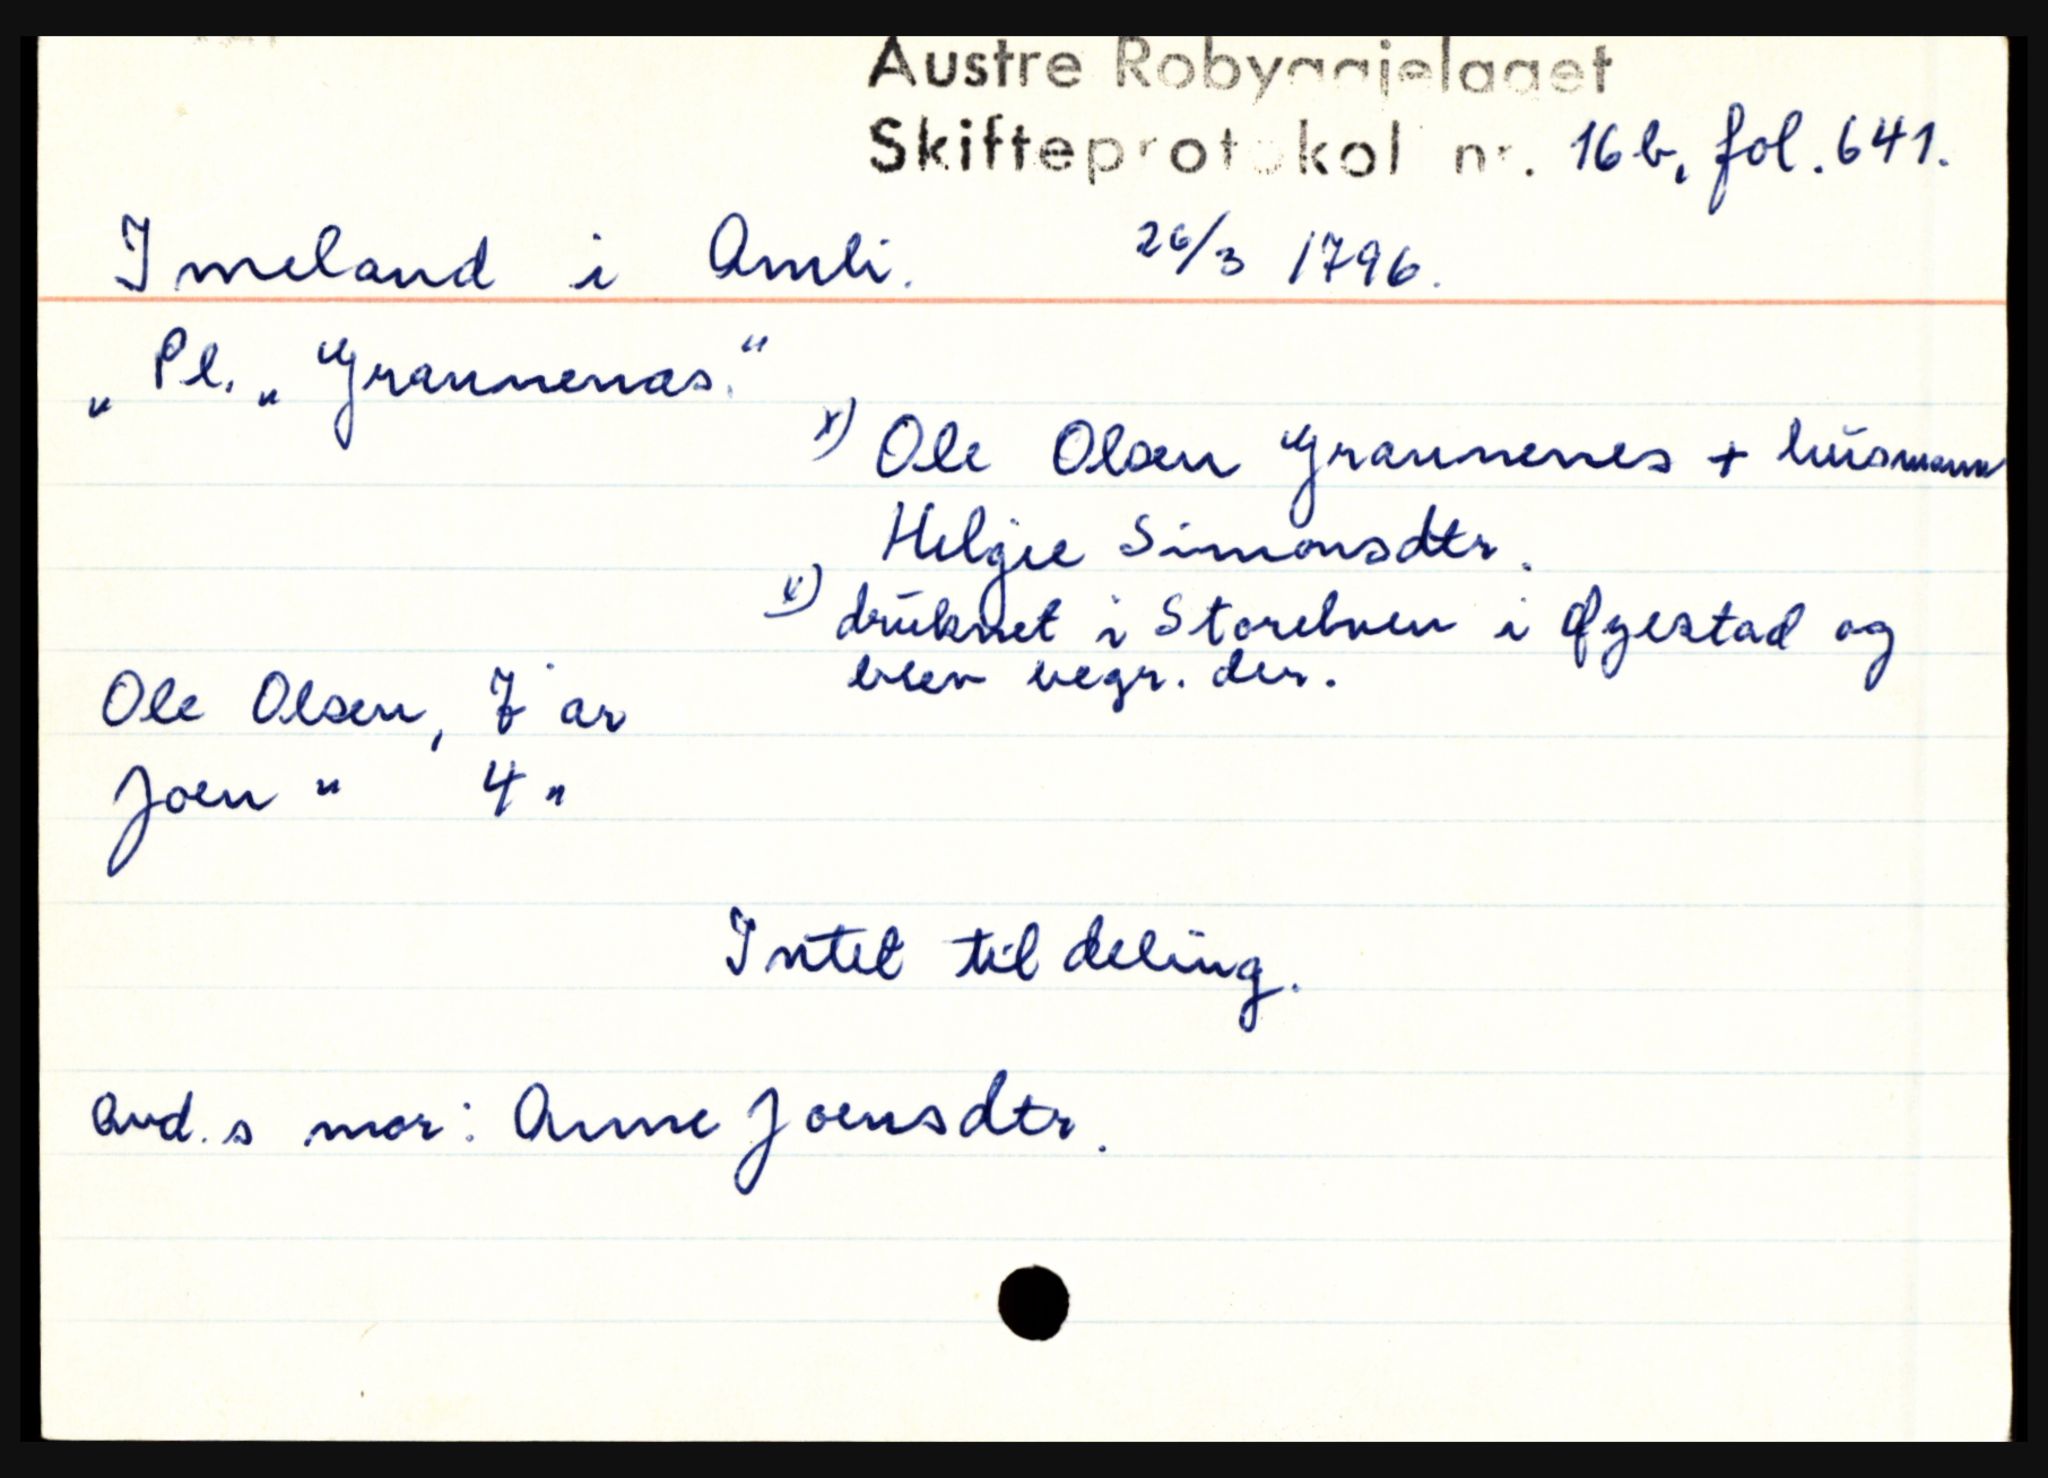 Austre Robyggjelaget
Skifteprotokol nr. 16b, fol. 641.
Imeland i Amli. 26/3 1796.
„ Pl. „ Graunenas."
x) Ole Olsen Graunenes + husmann
Helgee Simonsdtr.
x) druknet i Storelven i Øyestad og
blev begr. der.
Ole Olsen, 7 år
Joen " 4 "
Intet til deling.
avd. s mor: Anne Joensdtr.